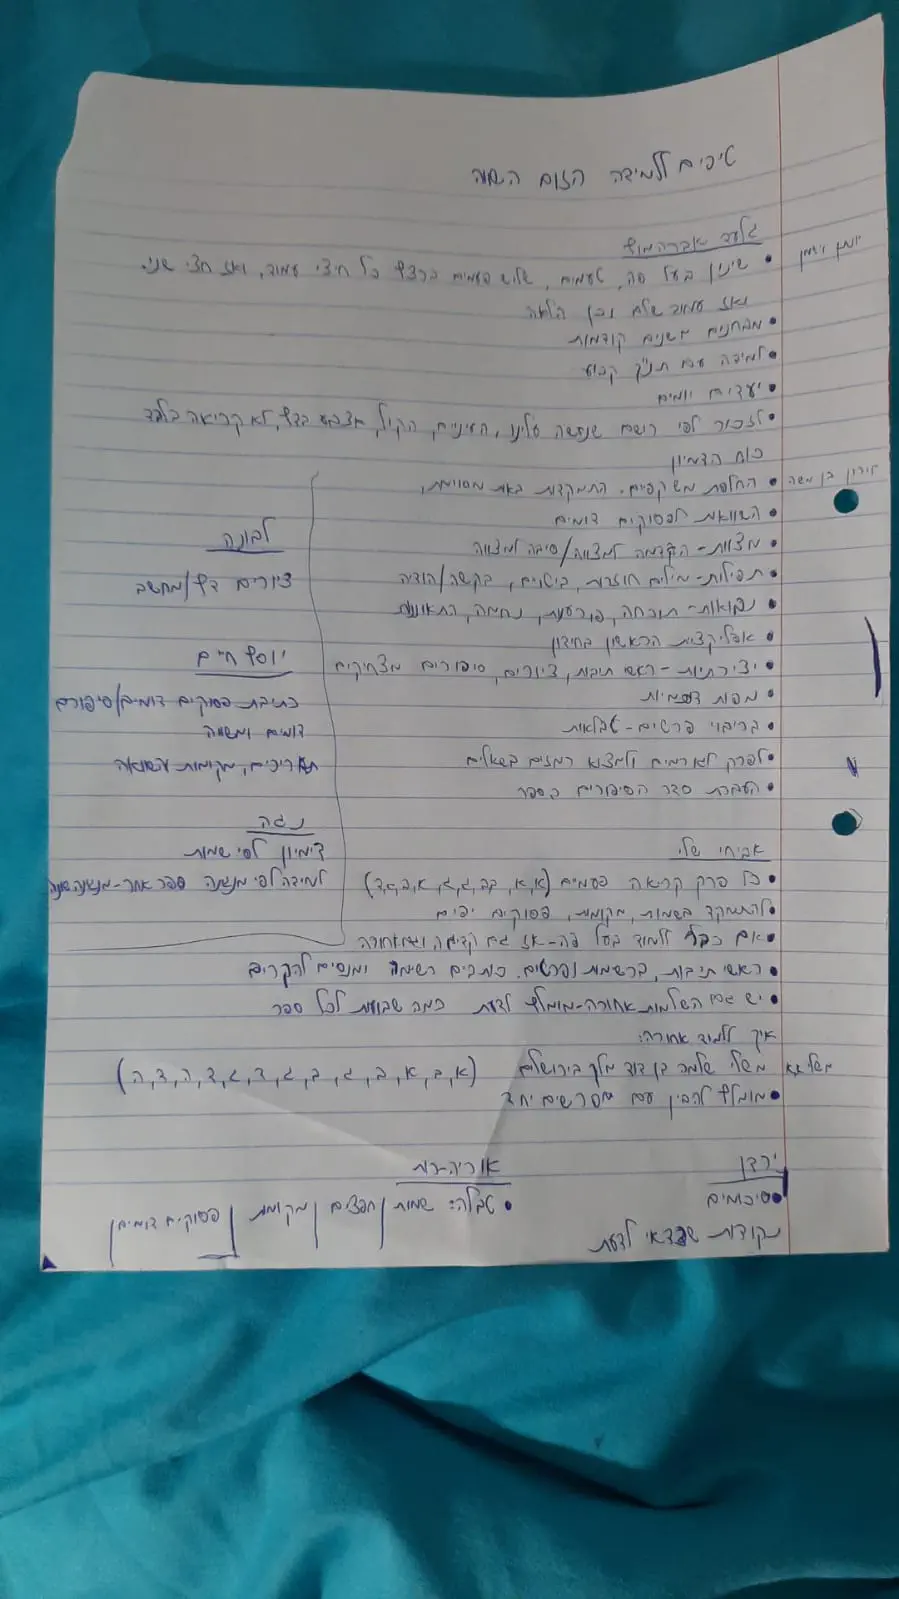 טיפים ללמידה הזום השנה
גלעד אברהמוף
יונתן ויזמן
• שינון בעל פה, טעמים, שלוש פעמים ברצף כל חיצי עמוד, ואז חצי שני.
ואז עמוד שלם וכן הלאה
• מבחנים משנים קודמות
• למידה עם תנ"ך קבוע
• יעדים יומים
• לזכור לפי רושם שנעשה עלינו, העיניים, הקול, אצבע בדף, לא קריאה בלבד
כוח הדמיון
לירון בן משה
• החלפת משקפים. התמקדות באות מסוימת,
• השוואות לפסוקים דומים
• מצוות - הקדמה למצווה/סיבה למצווה
• תפילות - מילים חוזרות, ביטויים, בקשה/הודיה
• נבואות - תוכחה, פורענות, נחמה, התאוננות
• אפליקצית הראשון בחידון
• יצירתיות - ראשי תיבות, ציורים, סיפורים מצחיקים
• מפות
• בריבוי פרטים - טבלאות
• לפרק לגורמים ולמצוא רמזים בשאלים
• העברת סדר הסיפורים בספר
לבונה
ציורים דף/מחשב
יוסף חיים
כתיבת פסוקים דומים/סיפורם
דומים ומשווה
תאריכים, מקומות
נגה
דימיון לפי שמות
למידה לפי מנגינה ספר אחר - מנגינה שונה
אביחי שלי
• כל פרק קריאה פעמים (א,א, ב,ב, ג,ג, א,ב,ג,ד)
• להתמקד בשמות, מקומות, פסוקים יפים
• אם כבר ללמוד בעל פה - אז גם קדימה וגם אחורה
• ראשי תיבות, ברשימות ופרטים. כותבים רשימה ומנסים להקרים
• יש גם השלמות אחורה - מומלץ לדעת כמה שבועות לכל ספר
איך ללמוד אחורה:
משלי א,א משלי שלמה בן דוד מלך בירושלים (א, ב, א, ב, ג, ב, ג, ד, ג, ד, ה, ד, ה)
• מומלץ להבין עם מפרשים יחד
ירדן
• סיכומים
נקודות שכדאי לדעת
אוריה-רות
• טבלה: שמות | חפצים | מקומות | פסוקים דומים